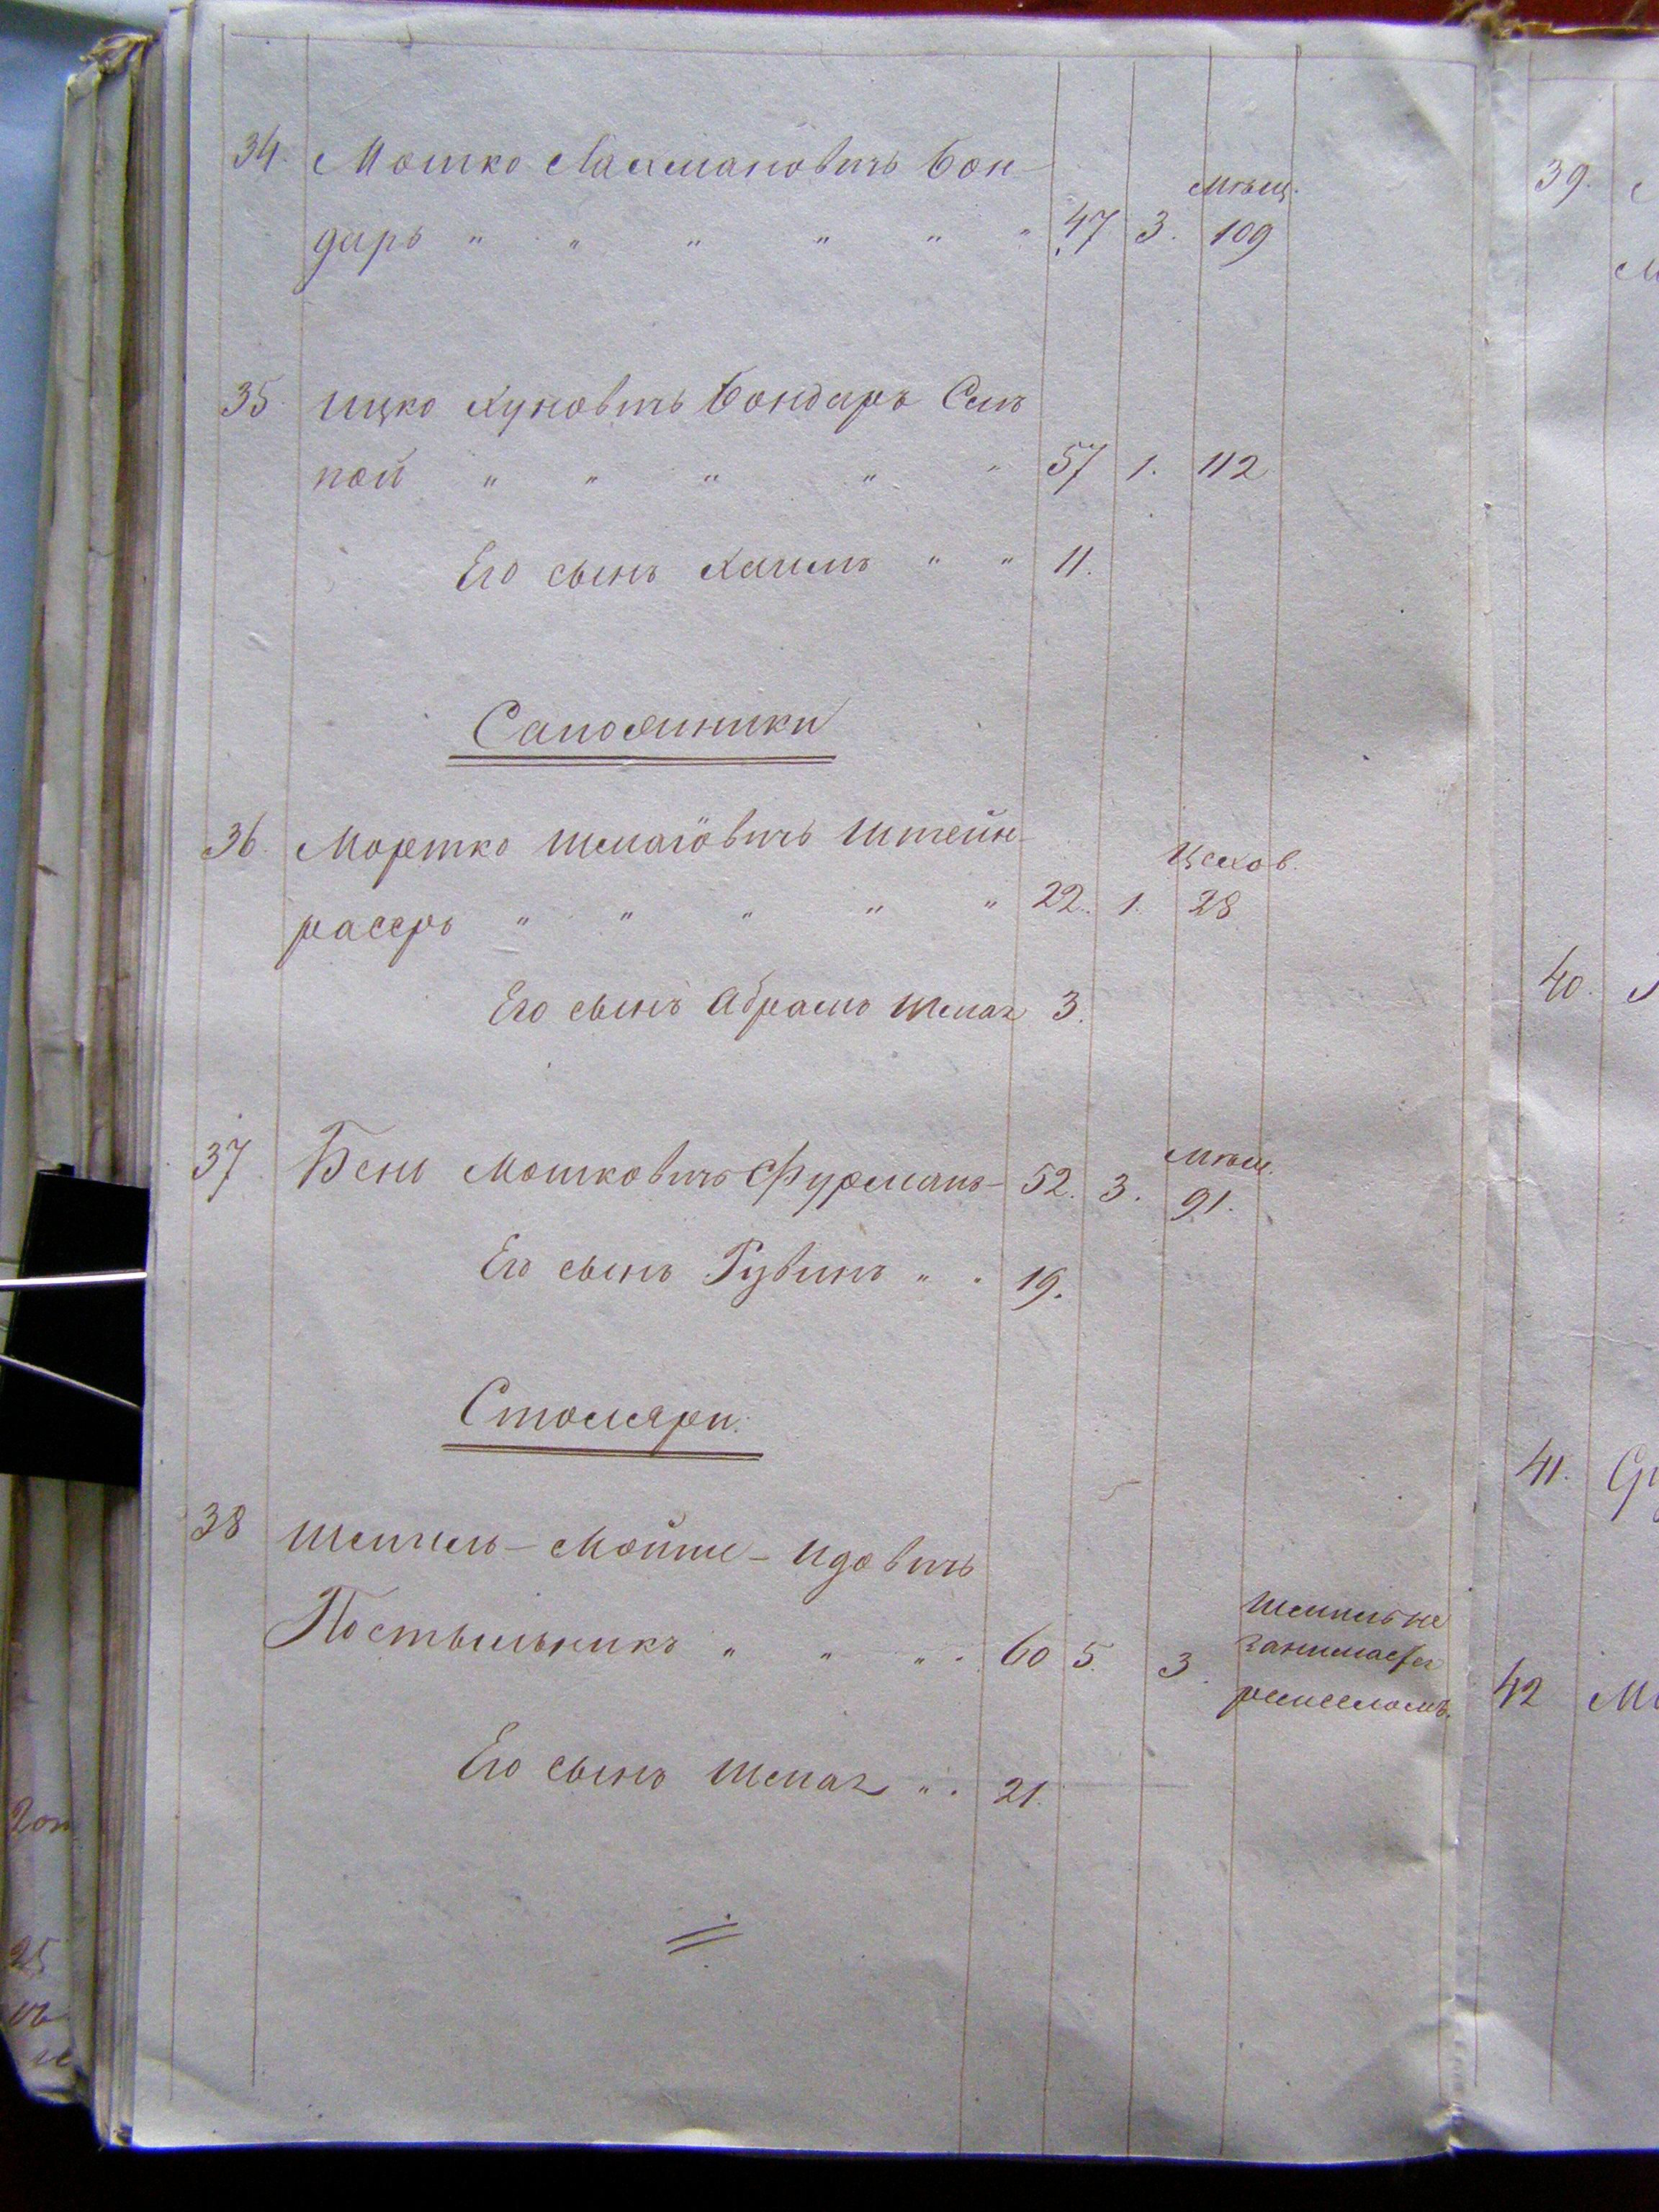 34. Мошко Лахмановичъ Бон-
мѣщ.
дарь " " " " " " 47 3. 109
35. Ицко Хуновичъ Бондарь Слѣ
пой " " " " " 57 1. 112
Его сынъ Хаимъ " " 11.
Сапожники
36. Мортко Шмаговичъ Штейн-
Цехов.
расеръ " " " " " 22. 1. 28
Его сынъ Абрамъ Шмаг 3.
37. Бень Мошковичъ Фурманъ 52. 3. мѣщ.
91.
Его сынъ Рувинъ " " 19.
Столяри.
38 Шмиль-Мойше-Идовичъ
Постыльникъ " " " " 60 5. 3.
Шмиль не
занимается
ремесломъ.
Его сынъ Шмаг " " 21.
39.
40.
41.
42